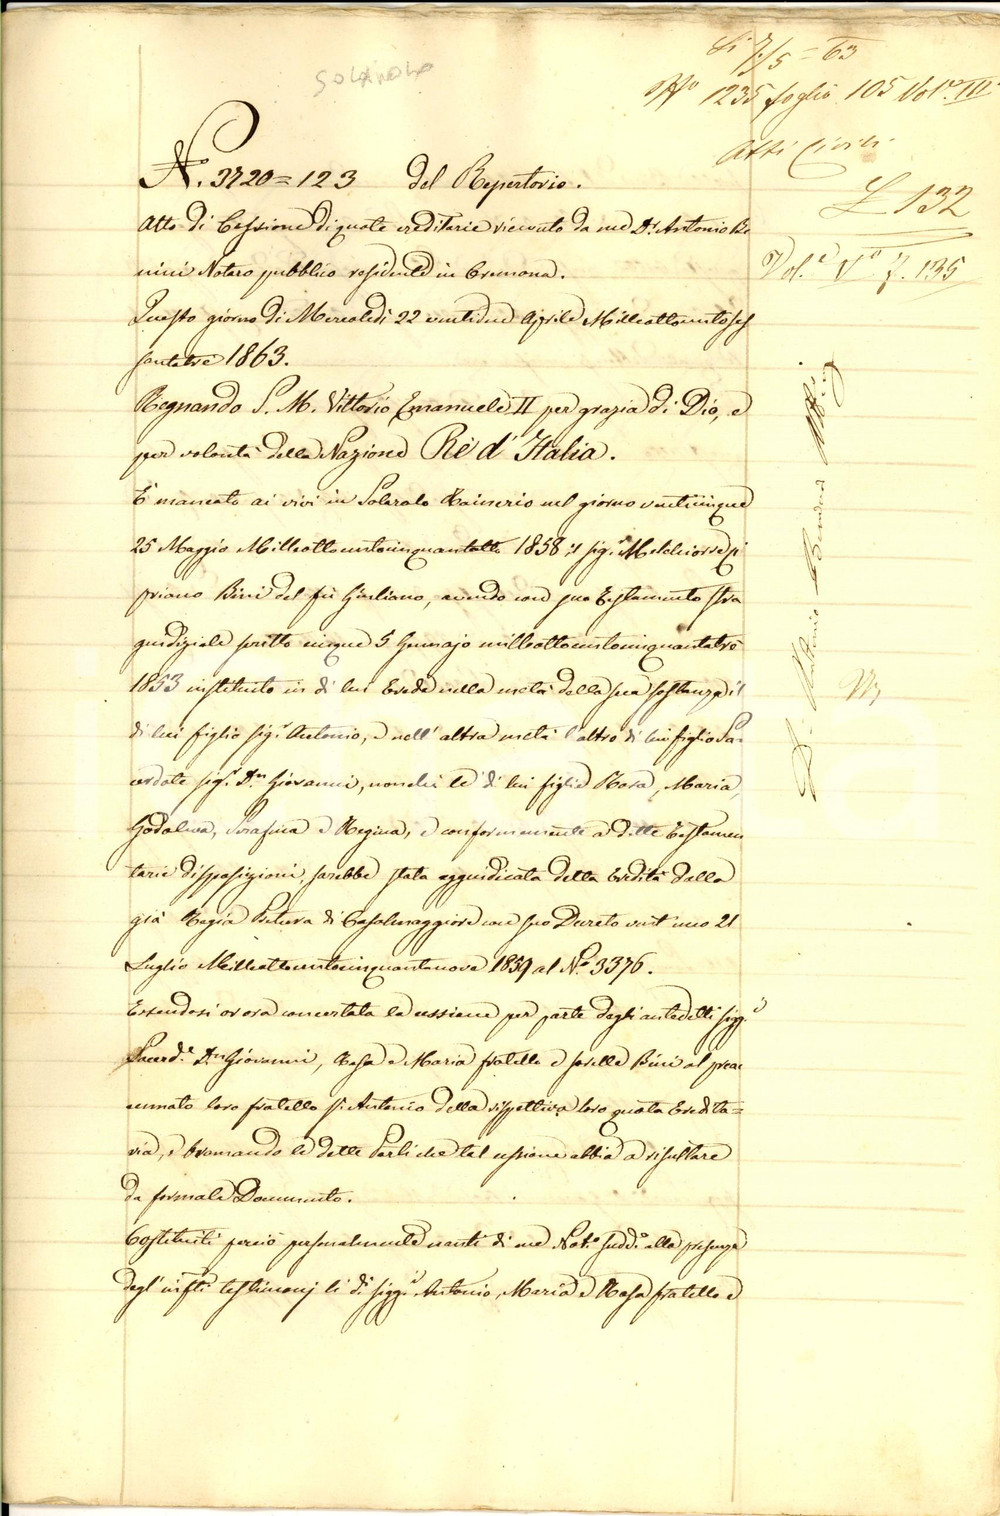 SOLAROLO
Li 7/5 = 63
N° 1235 foglio 105 Vol.e III
Atti Civili
£ 132
Vol.e V° f. 135
N. 3720 = 123 del Repertorio.
Atto di Cessione di quote ereditarie ricevuto da me Dr. Antonio Be
nini Notaro pubblico residente in Cremona.
Questo giorno di Mercoledì 22 ventidue Aprile Milleottocentoses
santatre 1863.
Regnando S. M. Vittorio Emanuele II per grazia di Dio, e
per volontà della Nazione Rè d'Italia.
È mancato ai vivi in Solarolo Rainerio nel giorno venticinque
25 Maggio Milleottocentocinquantotto 1858 il sig.r Melchiorre Ci
priano Bini del fù Giuliano, avendo con suo Testamento stra
giudiziale scritto cinque 5 Gennajo milleottocentocinquantatre
1853 instituito in di lui Erede nella metà della sua sostanza il
di lui figlio sig.r Antonio, e nell'altra metà l'altro di lui figlio Sa-
cerdote sig.r Dn. Giovanni, nonchè le di lui figlie Rosa, Maria,
Godelina, Serafina e Regina, e conformemente a dette Testamen
tarie disposizioni, sarebbe stata aggiudicata detta Eredità dalla
già Regia Pretura di Casalmaggiore con suo Decreto vent'uno 21
Luglio Milleottocentocinquantanove 1859 al N.° 3376.
Essendosi or ora concertata la cessione per parte degli antedetti sigg.i
Sacerd.e Dn Giovanni, Rosa e Maria fratello e sorelle Bini al preac
cennato loro fratello s.r Antonio della rispettiva loro quota Eredita=
ria, e bramando le dette Parti che tal cessione abbia a risultare
da formale Documento.
Costituiti perciò personalmente nanti di me Not.o sudd.o alla presenza
degl'infti testimonj li di sigg.i Antonio, Maria e Rosa fratello e